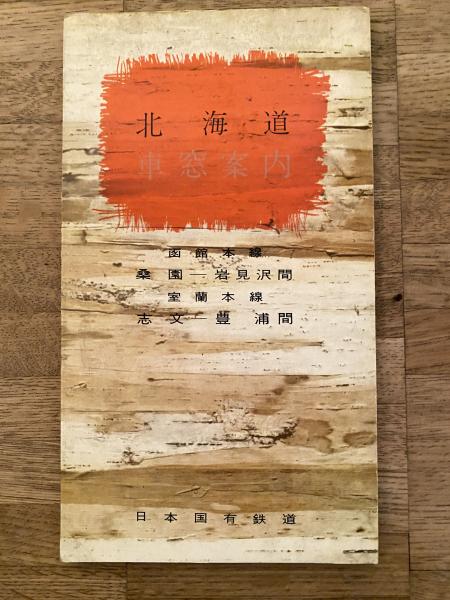 北海道
車窓案内
函館本線
桑園—岩見沢間
室蘭本線
志文—豊浦間
日本国有鉄道